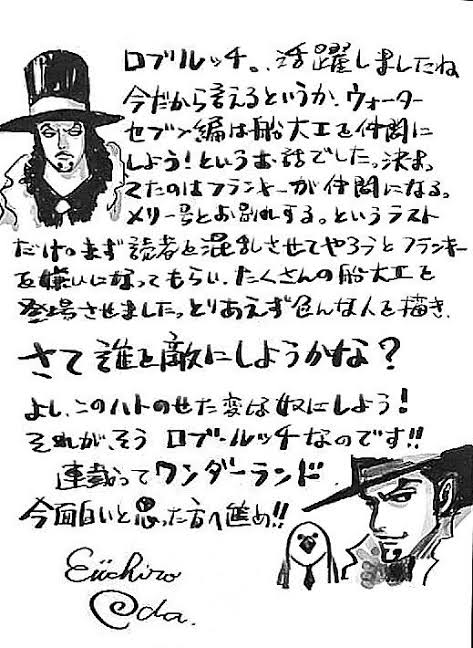 ロブ・ルッチ。活躍しましたね
今だから言えるというか、ウォーター
セブン編は船大工を仲間に
しよう！というお話でした。決まっ
てたのはフランキーが仲間になる。
メリー号とお別れする。というラスト
だけ。まず読者を混乱させてやろうとフランキー
を嫌いになってもらい、たくさんの船大工を
登場させました。とりあえず色んな人を描き、
さて誰を敵にしようかな？
よし、このハトのせた変な奴にしよう！
それが、そう ロブ・ルッチなのです!!
連載ってワンダーランド
今面白いと思った方へ進め!!
Eiichiro
Oda.